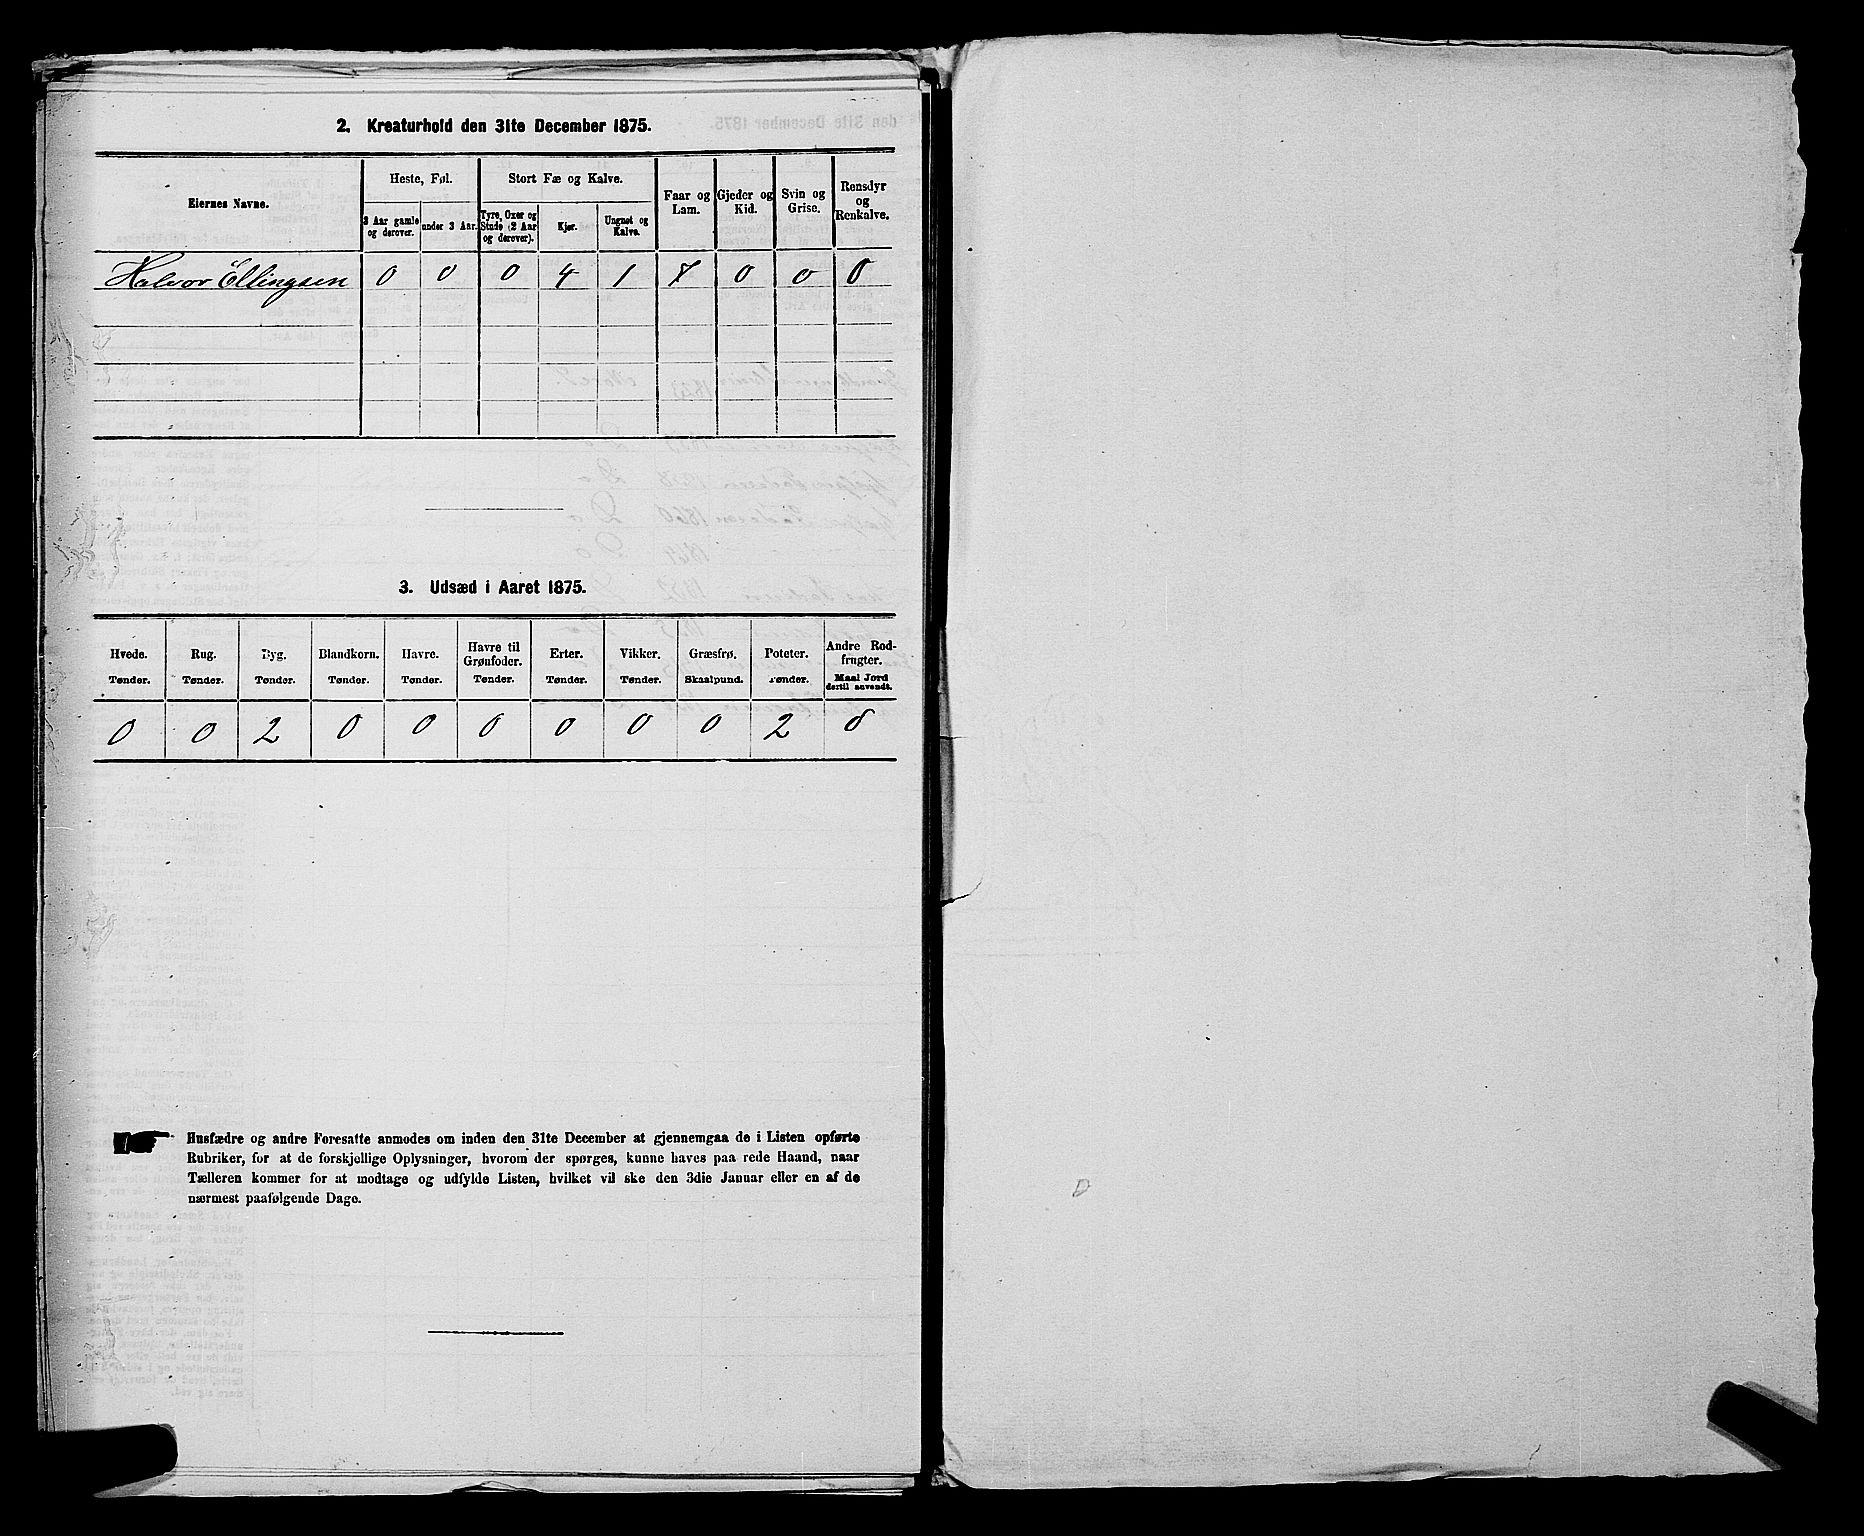 2. Kreaturhold den 31te December 1875.
Eiernes Navne.
Heste, Føl.
3 Aar gamle og derover.
under 3 Aar.
Stort Fæ og Kalve.
Tyre, Oxer og Stude (2 Aar og derover).
Kjør.
Ungnøt og Kalve.
Faar og Lam.
Gjeder og Kid.
Svin og Grise.
Rensdyr og Renkalve.
Halvor Ellingsen 0 0 0 4 1 7 0 0 0
3. Udsæd i Aaret 1875.
Hvede. Tønder.
Rug. Tønder.
Byg. Tønder.
Blandkorn. Tønder.
Havre. Tønder.
Havre til Grønfoder. Tønder.
Erter. Tønder.
Vikker. Tønder.
Græsfrø. Skaalpund.
Poteter. Tønder.
Andre Rodfrugter. Maal Jord dertil anvendt.
0 0 2 0 0 0 0 0 0 2 0
Husfædre og andre Foresatte anmodes om inden den 31te December at gjennemgaa de i Listen opførte
Rubriker, for at de forskjellige Oplysninger, hvorom der spørges, kunne haves paa rede Haand, naar
Tælleren kommer for at modtage og udfylde Listen, hvilket vil ske den 3die Januar eller en af de
nærmest paafølgende Dage.